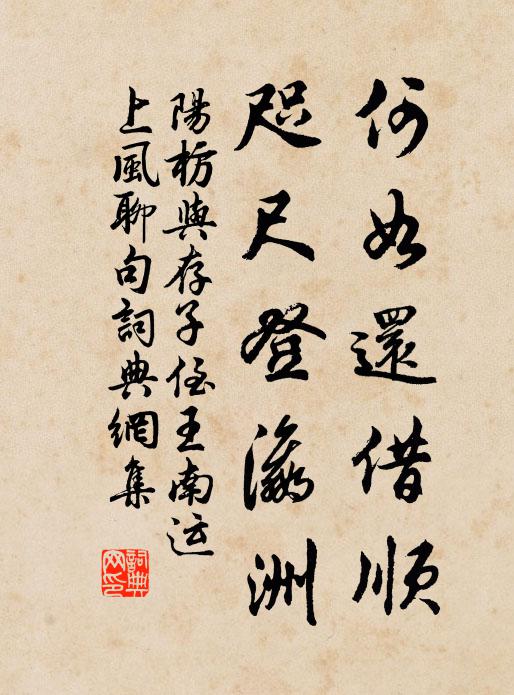 何如還借順
咫尺登瀛洲
陽枋與存子侄王南运
上風聊句詞典網集
詞典网印